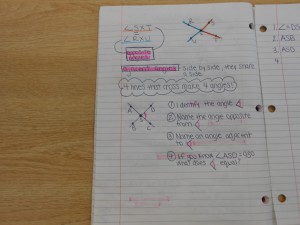 ∠SST
=
∠RSU
opposite angles
Adjacent angles side by side, they share a side.
4 lines that cross make 4 angles!
① Identify the angle
② Name the angle opposite from
③ Name an angle adjacent to
④ If you know ∠ASD = 45° what does equal?
A
D
B
C
1.
2. ASB
3. ASD
4.